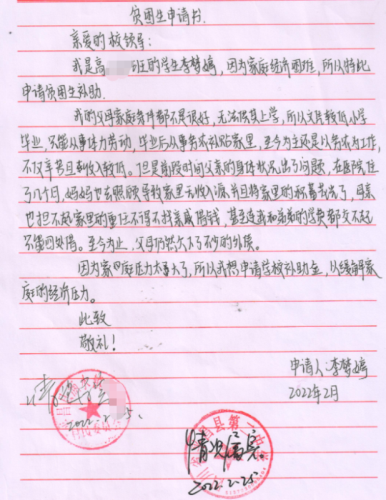 贫困生申请书
亲爱的校领导:
我是高 班的学生李梦婷,因为家庭经济困难,所以特此
申请贫困生补助。
我的父母家庭条件都不是很好,无法供其上学,所以文凭较低,小学
毕业,只能从事体力劳动,毕业后从事务农补贴家里,至今为止还是以务农为工作,
不仅辛苦且收入较低。但是前段时间父亲的身体状况出了问题,在医院住
了几十日,妈妈也去照顾导致家里无收入源并且将家里的积蓄花光了,母亲
也担不起家里的重任不得不找亲戚借钱,甚至连我和弟弟的学费都交不起
只能四处借。至今为止,父母仍然欠下了不少的外债。
因为家庭压力太重大了,所以我想申请学校补助金,从缓解家
庭的经济压力。
此致
敬礼!
申请人:李梦婷
2022年2月
情况属实
2022.2.25.